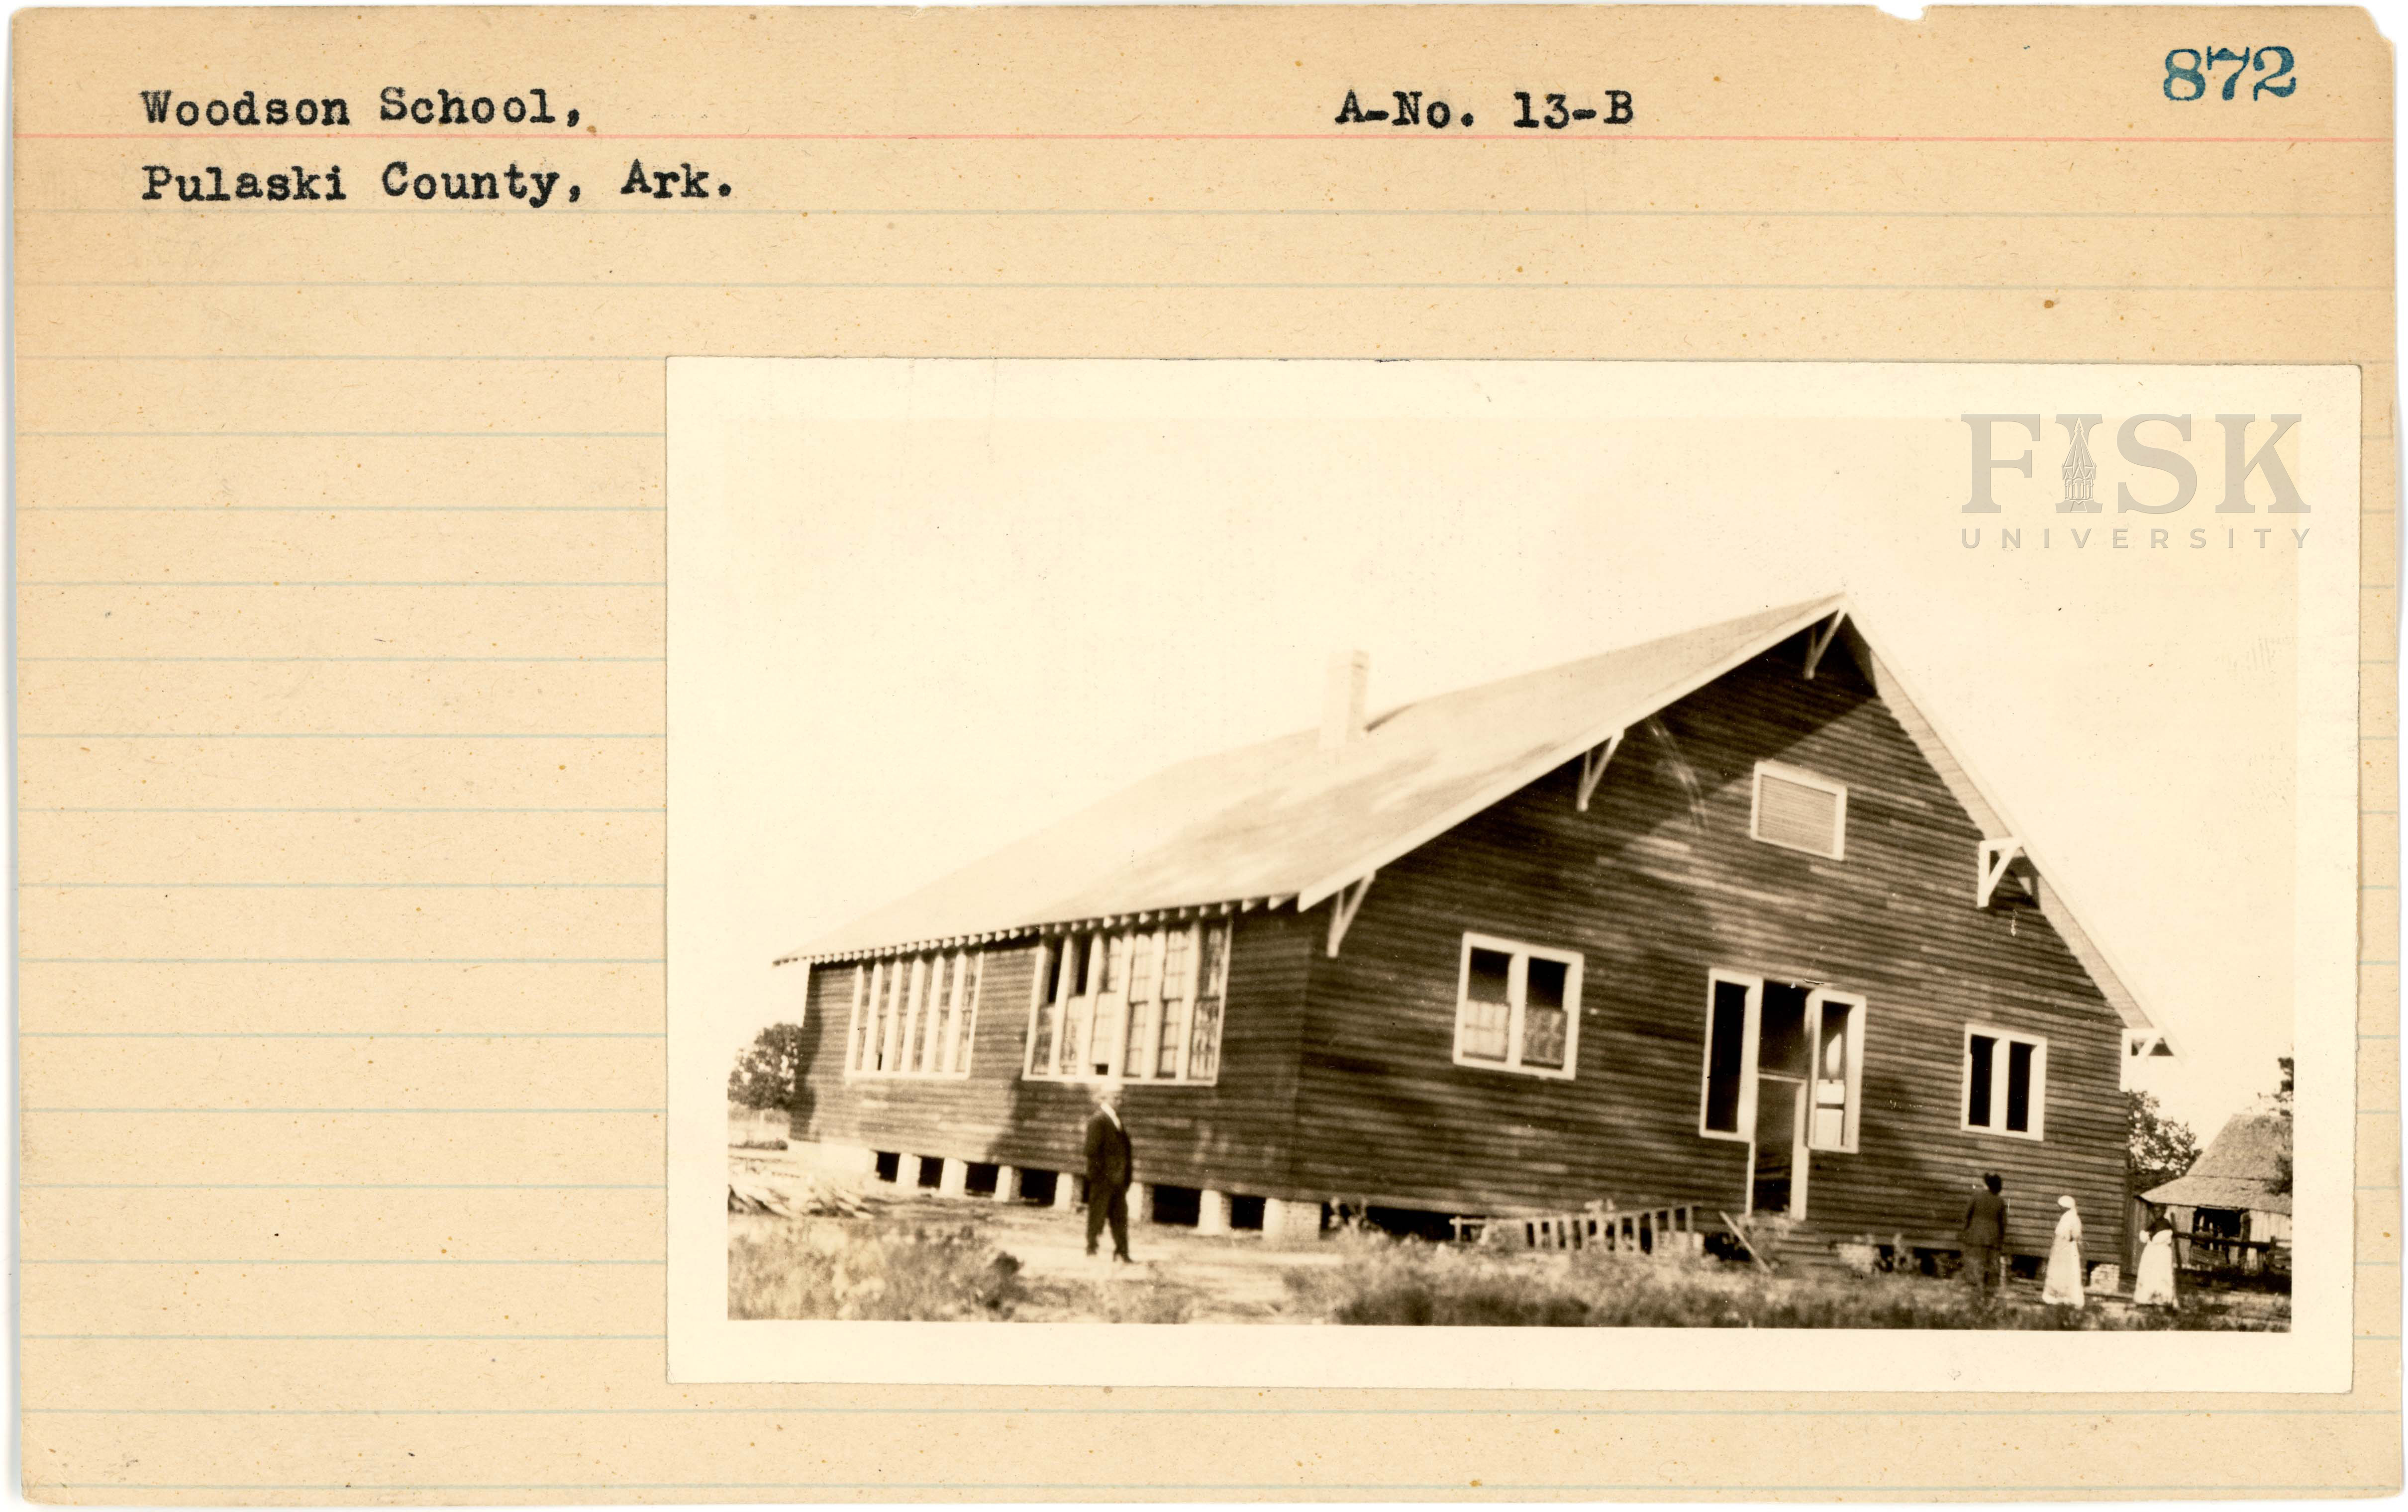 872
Woodson School, A-No. 13-B
Pulaski County, Ark.
FISK
UNIVERSITY